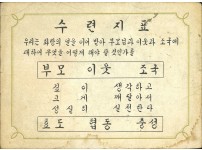 수련지표
우리는 화랑의 얼을 이어 받아 부모님과 이웃과 조국에
대하여 무엇을 어떻게 해야 할 것인가를
부모 이웃 조국
깊이 생각하고
크게 깨달아서
성실히 실천한다
효도 협동 충성